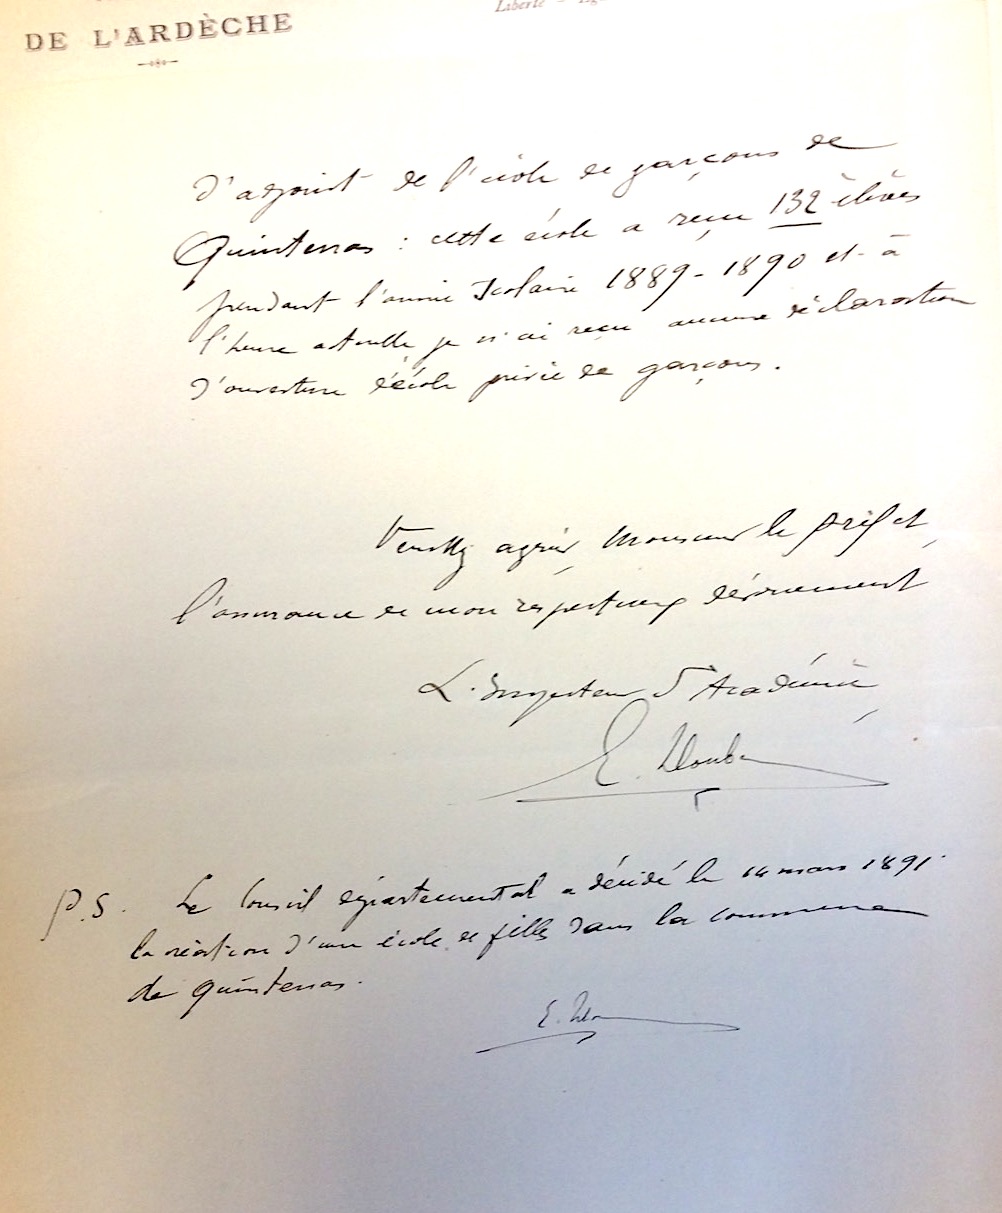 Liberté –
DE L'ARDÈCHE
d'adjoint de l'école de garçons de
Quintenas : cette école a reçu 132 élèves
pendant l'année scolaire 1889-1890 et à
l'heure actuelle je n'ai reçu aucune déclaration
d'ouverture d'école privée de garçons.
Veuillez agréer, Monsieur le préfet,
l'assurance de mon respectueux dévouement
L'Inspecteur d'Académie,
E.
P.S. Le Conseil départemental a décidé le 14 mars 1891
la création d'une école de filles dans la commune
de Quintenas.
E.